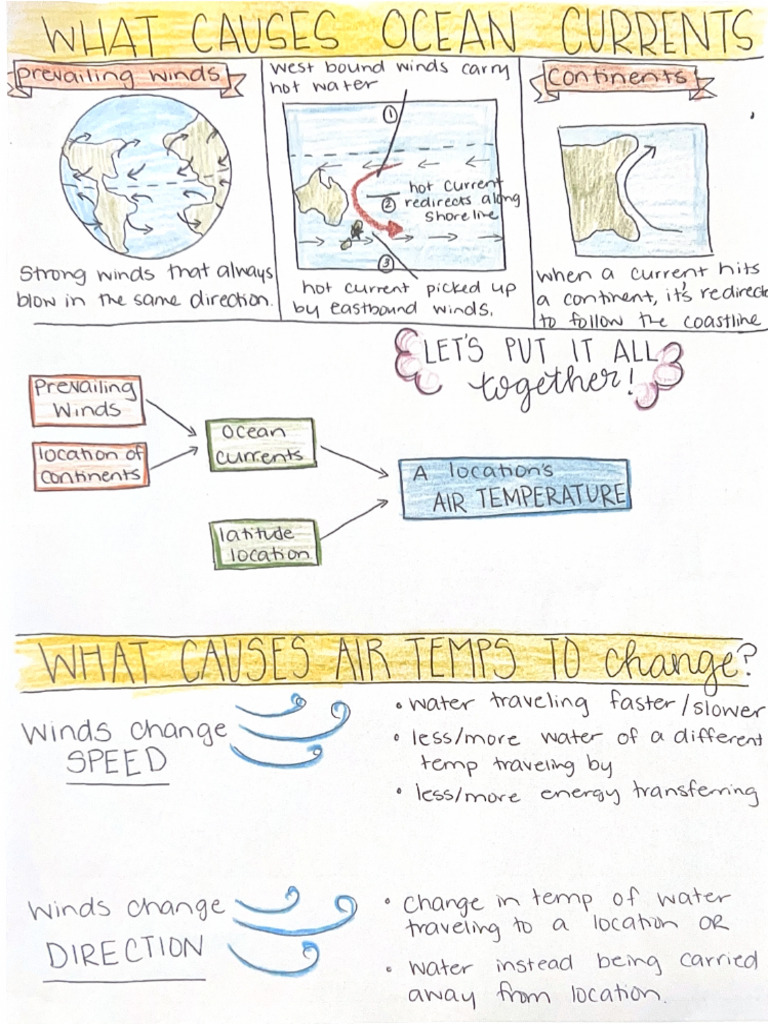 WHAT CAUSES OCEAN CURRENTS
Prevailing winds
Strong winds that always
blow in the same direction.
West bound winds carry
hot water
①
hot current
② redirects along
shoreline
③
hot current picked up
by eastbound winds.
Continents
when a current hits
a continent, it's redirecte
to follow the coastline
LET'S PUT IT ALL
together!
Prevailing
Winds
location of
continents
Ocean
currents
latitude
location
A location's
AIR TEMPERATURE
WHAT CAUSES AIR TEMPS TO change?
Winds change
SPEED
• water traveling faster/slower
• less/more water of a different
temp traveling by
• less/more energy transferring
Winds change
DIRECTION
• change in temp of water
traveling to a location OR
• water instead being carried
away from location.